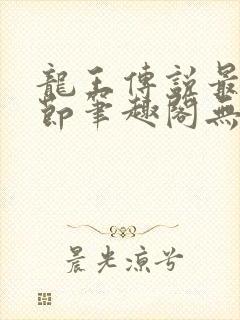 龍王傳說最
節筆趣閣無
晨光涼兮